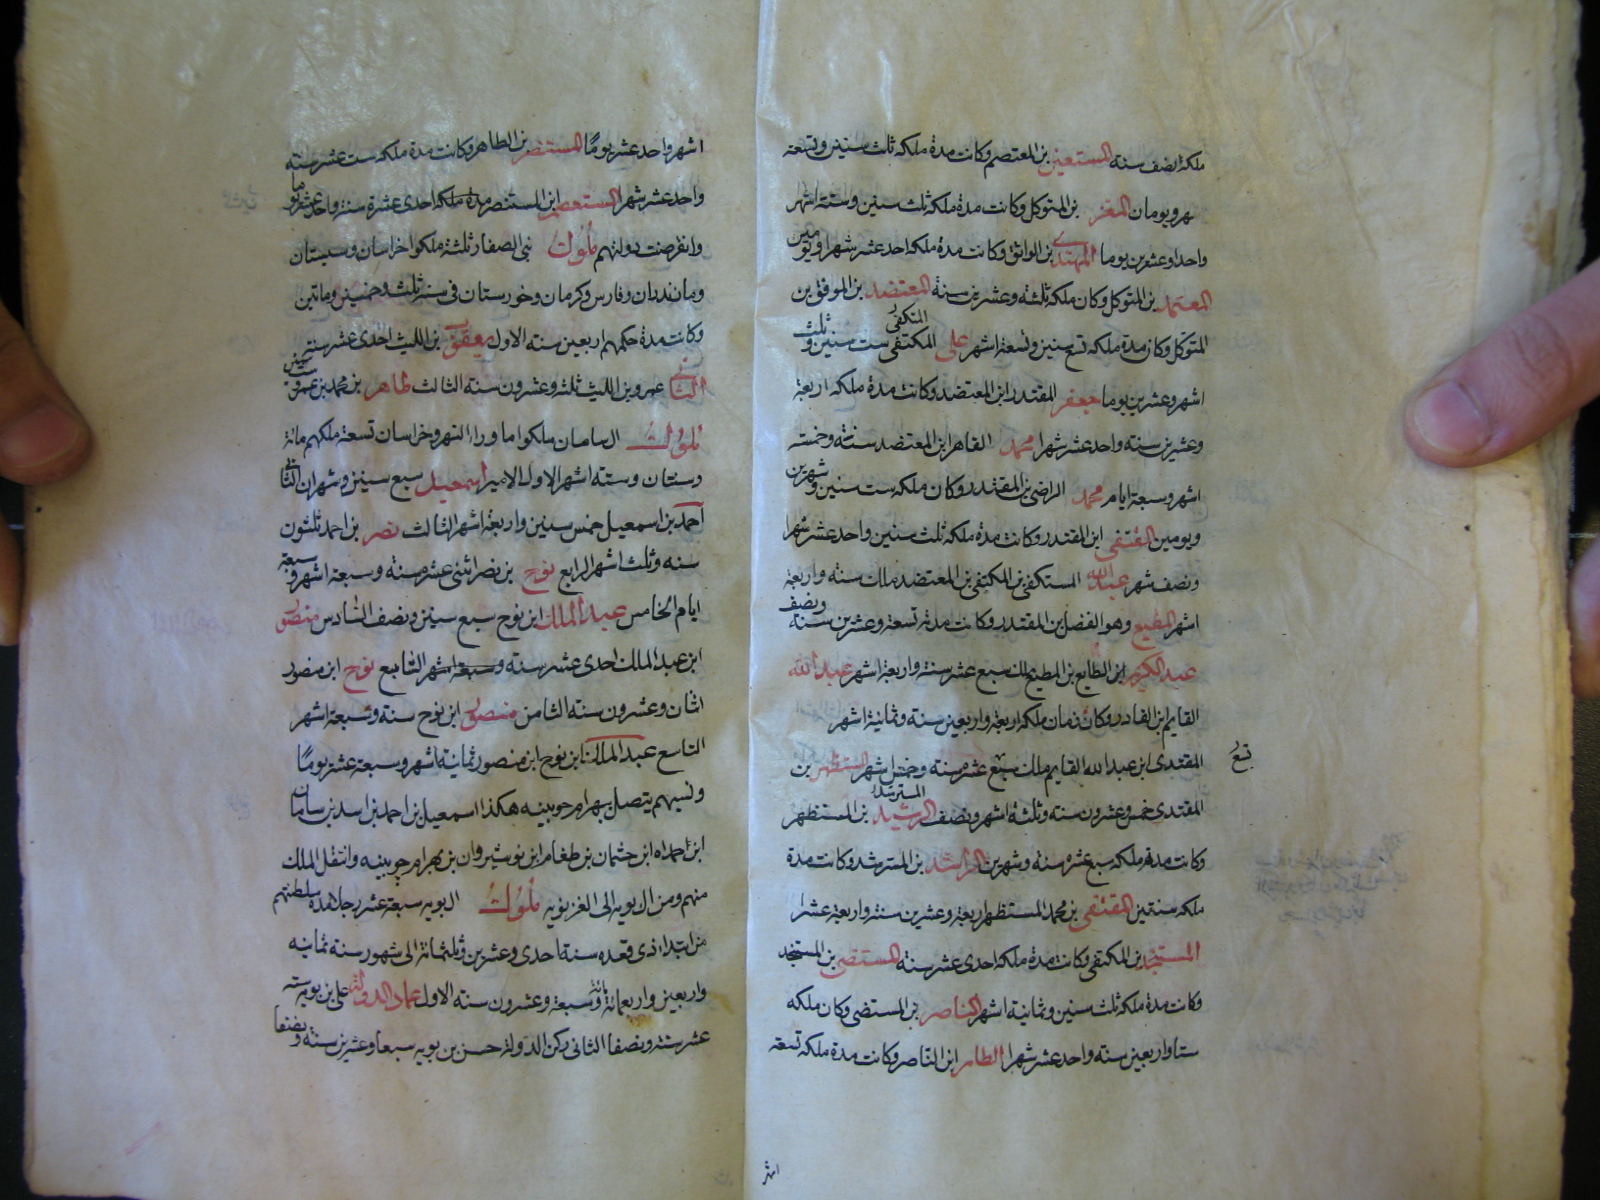 ملكه نصف سنة المستعين بن المعتصم وكانت مدة ملكه ثلث سنين وتسعة
شهر ويومان المعتز بن المتوكل وكانت مدة ملكه ثلث سنين وستة اشهر
واحدا وعشرين يوما المهتدي بن الواثق وكانت مدة ملكه احد عشر شهرا ويومين
المعتمد بن المتوكل وكان ملكه ثلثة وعشرين سنة المعتضد بن الموفق بن
المتوكل وكان مدة ملكه تسع سنين وتسعة اشهر علي المكتفي ست سنين وثلث
المتكفي
اشهر وعشرين يوما جعفر المقتدر ابن المعتضد وكانت مدة ملكه اربعة
وعشرين سنه واحد عشر شهرا محمد القاهر ابن المعتضد سنة وخمسة
اشهر وسبعة ايام محمد الراضي بن المقتدر وكان ملكه ست سنين وشهرين
ويومين المتقي ابن المقتدر وكانت مدة ملكه ثلث سنين واحد عشر شهرا
ونصف شهر عبد الله المستكفي بن المكتفي بن المعتضد ملك سنة واربعة
اشهر المطيع وهو الفضل بن المقتدر وكانت مدته تسعة وعشرين سنة ونصف
عبد الكريم ابن الطايع بن المطيع ملك سبع عشر سنة واربعة اشهر عبد الله
القايم ابن القادر وكان زمان ملكه اربعة واربعين سنه وثمانية اشهر
المقتدى ابن عبد الله القايم ملك عشر سنه وخمس اشهر المستظهر بن
المقتدى خمس وعشرون سنه وثلثة اشهر ونصف الرشيد بن المستظهر
المسترشد
وكانت مدة ملكه سبع عشره سنه وشهرين الراشد بن المسترشد وكانت مدة
ملكه سنتين المقتفى بن محمد المستظهر اربعة وعشرين سنة واربعة عشرا
المستنجد بن المكتفى وكانت مدة ملكه احدى عشر سنة المستضى بن المستنجد
وكانت مدة ملكه ثلث سنين وثمانية اشهر الناصر بن المستضى وكان ملكه
ستا واربعين سنه واحد عشر شهرا الظاهر ابن الناصر وكانت مدة ملكه تسعة
اشهر
اشهر واحد عشر يومًا المستنصر بن الظاهر وكانت مدة ملكه ست عشر سنه
واحد عشر شهرا المستعصم ابن المستنصر مدة ملكه احدى عشرة سنة واحد عشر يوما
وانقرضت دولتهم ملوك بني الصفار ثلثة ملكوا خراسان وسيستان
ومازندران وفارس وكرمان وخورستان في سنة ثلث وخمسين وماتين
وكانت مدة حكمهم اربعين سنه الاول يعقوب بن الليث احدى عشر سنة
الثاني عمرو بن الليث ثلثه وعشرون سنة الثالث طاهر بن محمد بن عمرو
ملوك ال سامان ملكوا ما وراء النهر وخراسان تسعة ملكهم مائة
وسنتان وستة اشهر الاول الامير اسمعيل سبع سنين وشهران الثاني
احمد بن اسمعيل خمس سنين واربعة اشهر الثالث نصر بن احمد ثلثون
سنه وثلث اشهر الرابع نوح بن نصر اثنى عشر سنة وسبعة اشهر وسبعة
ايام الخامس عبد الملك ابن نوح سبع سنين ونصف السادس منصور
ابن عبد الملك احدى عشر سنه وسبعة اشهر السابع نوح ابن منصور
اثنان وعشرون سنه الثامن منصور ابن نوح سنة وسبعة اشهر
التاسع عبد الملك ابن نوح ابن منصور ثمانية اشهر وسبعة عشر يومًا
ونسبهم يتصل ببهرام جوبينه هكذا اسمعيل بن احمد بن اسد بن سامان
ابن جثمان بن طغام ابن نوشيروان بن بهرام جوبينه وانتقل الملك
منهم ومن ال بويه الى الغزنويه ملوك ال بويه سبعة عشر رجلا مدة سلطنتهم
من ابتداء ذى قعده سنة احدى وعشرين وثلثمائة الى شهور سنه ثمانيه
واربعين واربعمائة مائة وسبعة وعشرون سنه الاول عماد الدولة علي بن بويه ستة
عشر سنة ونصفا الثانى ركن الدولة حسن بن بويه سبعا وعشرين سنة ونصفا